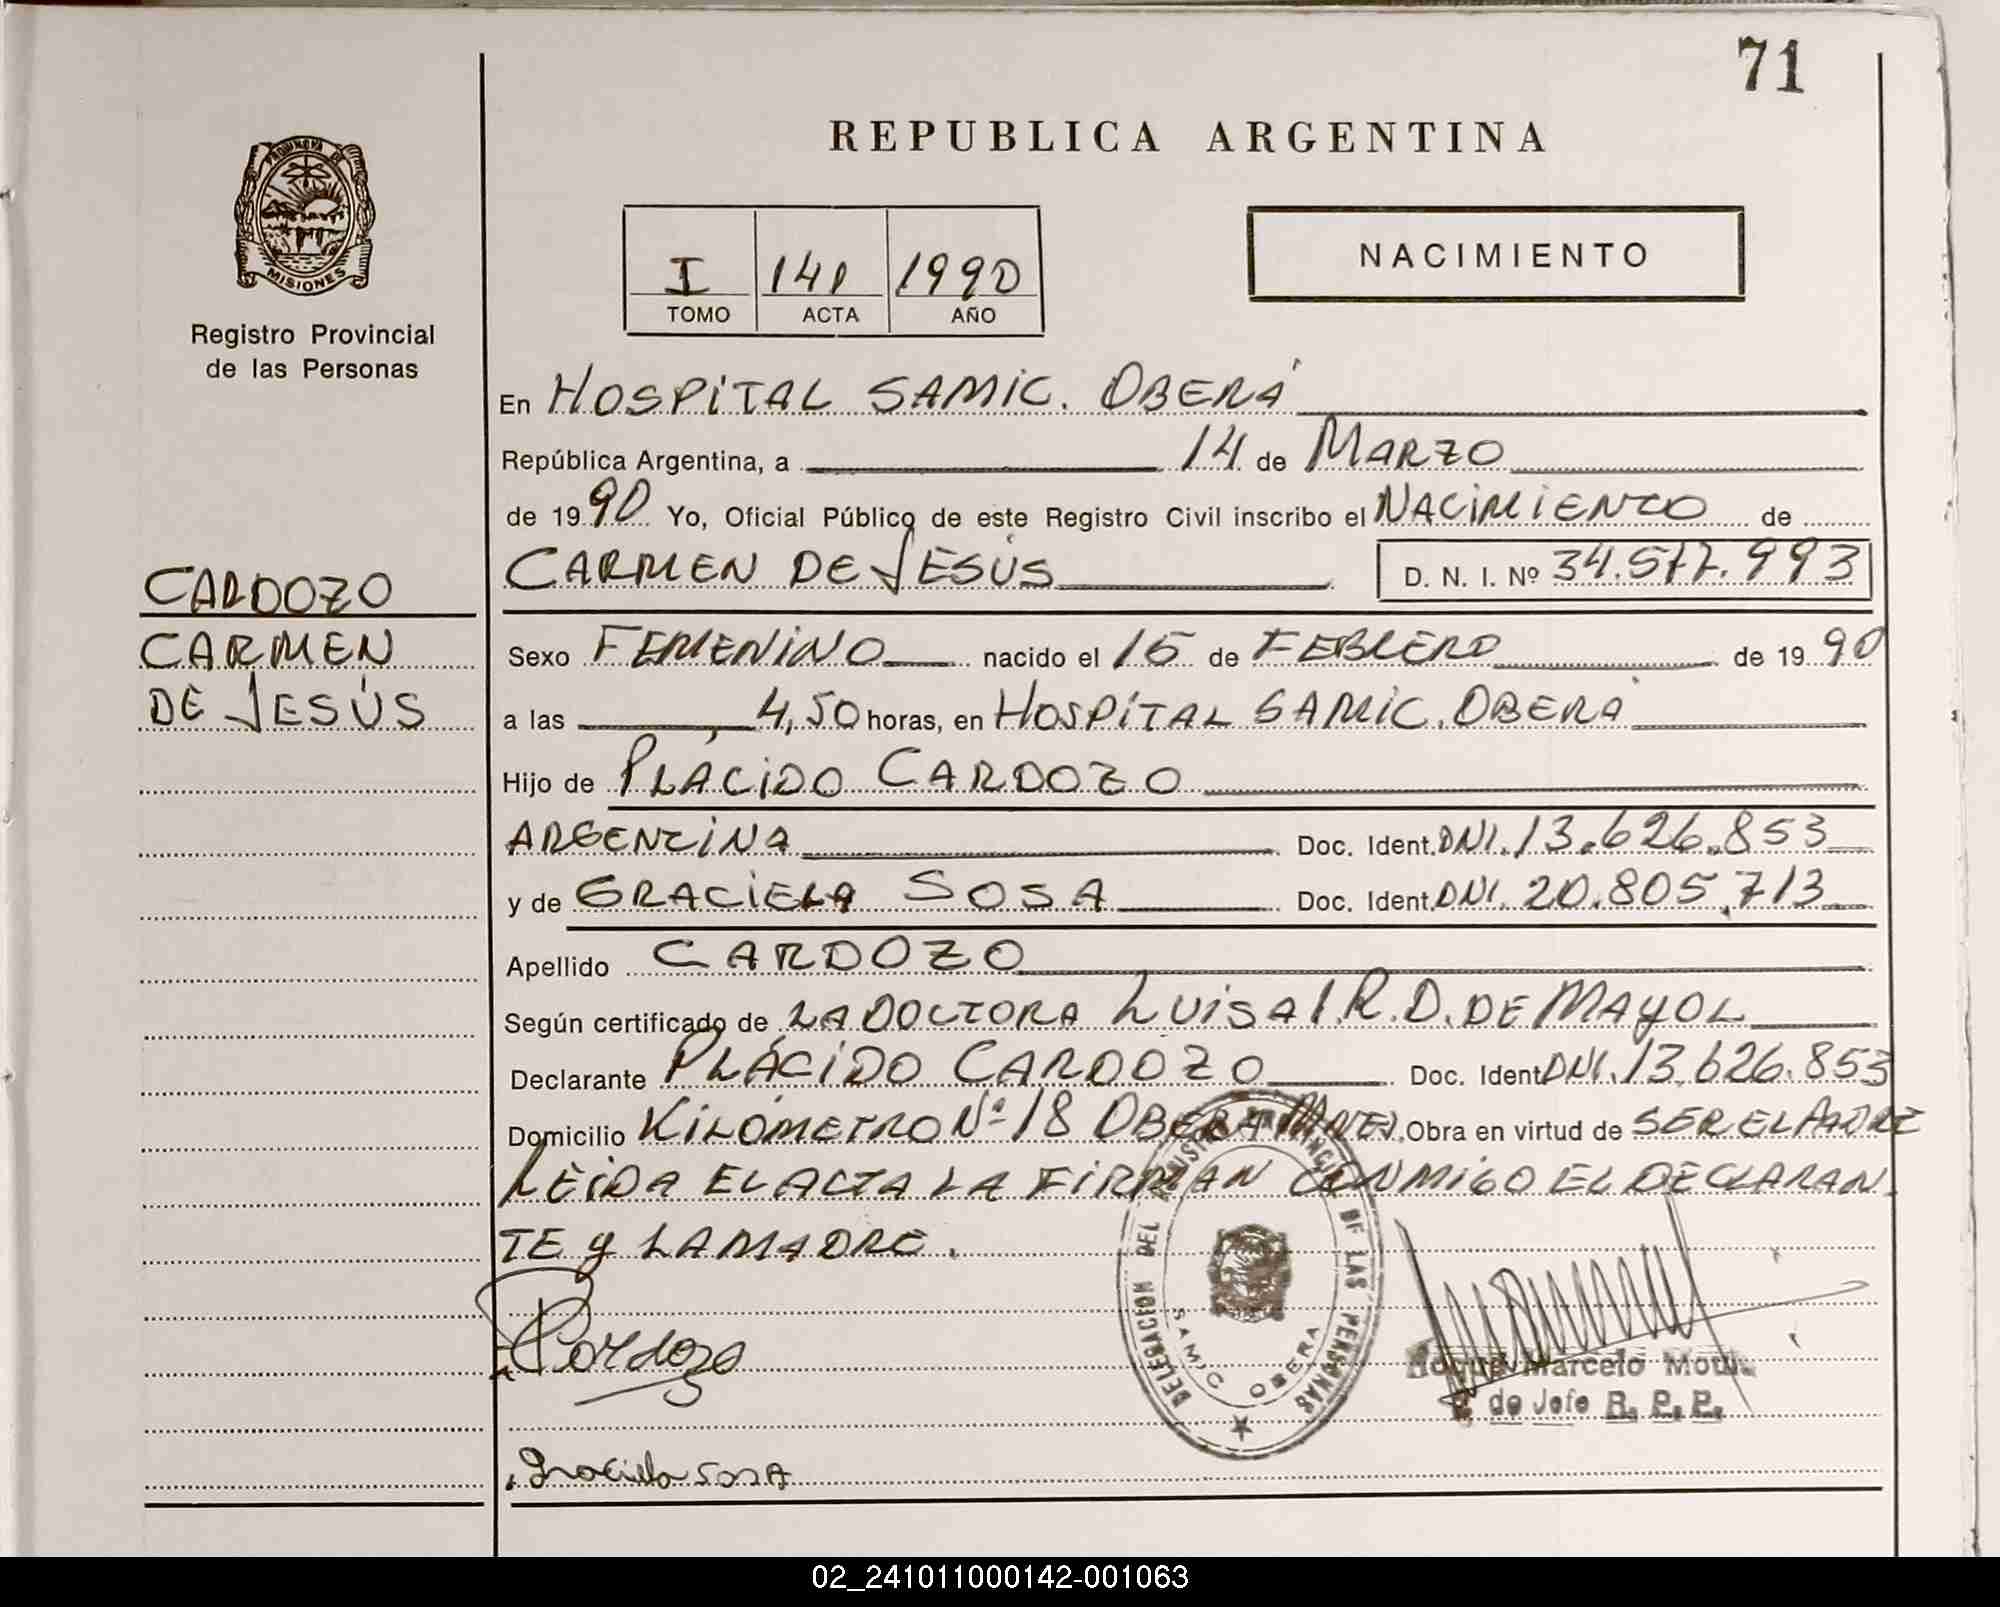 71
REPUBLICA ARGENTINA
PROVINCIA DE
MISIONES
Registro Provincial
de las Personas
I 141 1990
TOMO ACTA AÑO
NACIMIENTO
En HOSPITAL SAMIC. OBERÁ
República Argentina, a 14 de MARZO
de 1990 Yo, Oficial Público de este Registro Civil inscribo el NACIMIENTO de
CARMEN DE JESÚS D. N. I. Nº 34.577.993
CARDOZO
CARMEN
DE JESÚS
Sexo FEMENINO nacido el 15 de FEBRERO de 1990
a las 4,50 horas, en HOSPITAL SAMIC. OBERÁ
Hijo de PLÁCIDO CARDOZO
ARGENTINA Doc. Ident. DNI. 13.626.853
y de GRACIELA SOSA Doc. Ident. DNI. 20.805.713
Apellido CARDOZO
Según certificado de LA DOCTORA LUISA I. R. D. DE MAYOL
Declarante PLÁCIDO CARDOZO Doc. Ident. DNI. 13.626.853
Domicilio KILÓMETRO Nº 18 OBERÁ Obra en virtud de SER EL PADRE
LEIDA EL ACTA LA FIRMAN CONMIGO EL DECLARAN
TE Y LA MADRE.
Cardozo
Graciela SOSA
DELEGACION DEL REGISTRO PROVINCIAL DE LAS PERSONAS
SAMIC OBERA
Roque Marcelo
de Jefe R. P. P.
02_241011000142-001063